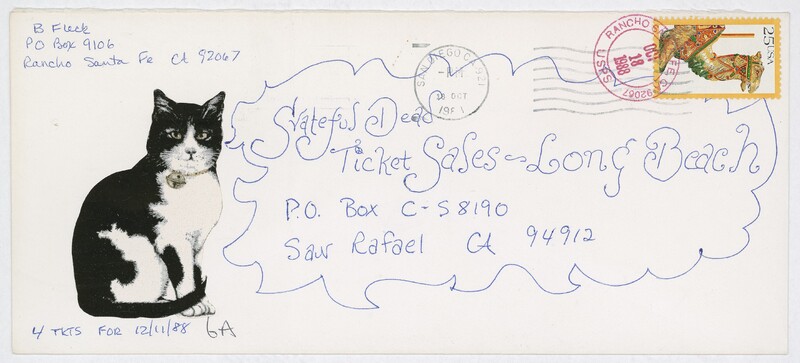 B Fleck
PO Box 9106
Rancho Santa Fe CA 92067
SAN DIEGO CA 921
18 OCT
RANCHO SANTA FE CA 92067
OCT
18
1988
USPS
25 USA
Grateful Dead
Ticket Sales - Long Beach
P.O. Box C-S8190
San Rafael CA 94912
4 TKTS FOR 12/11/88 6A